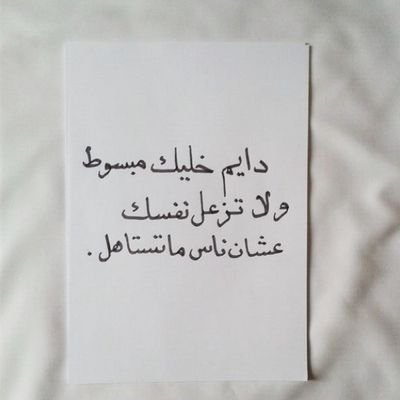 دايم خليك مبسوط
ولا تزعل نفسك
عشان ناس ماتستاهل .